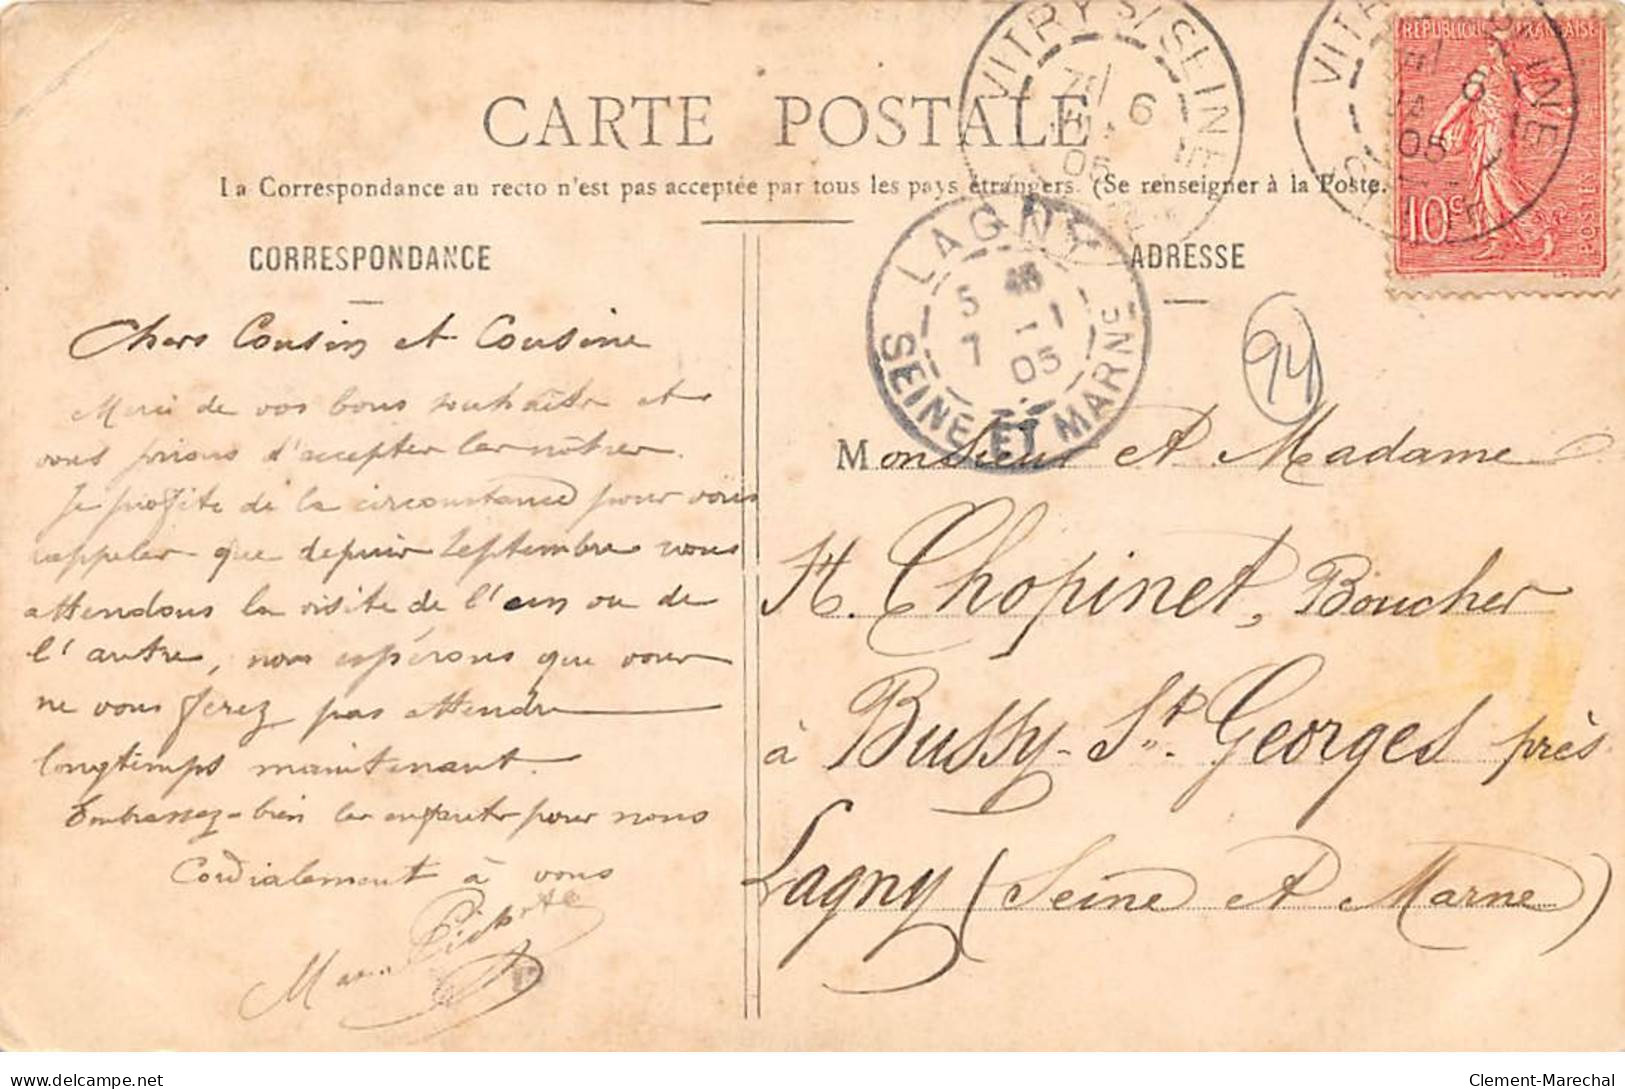 CARTE POSTALE
La Correspondance au recto n'est pas acceptée par tous les pays étrangers. (Se renseigner à la Poste.
CORRESPONDANCE
Chers Cousin et Cousine
Merci de vos bons souhaits et
vous prions d'accepter les nôtres.
Je profite de la circonstance pour vous
rappeler que depuis Septembre nous
attendons la visite de l'un ou de
l'autre, nous espérons que vous
ne vous ferez pas attendre
longtemps maintenant.
Embrassez-bien les enfants pour nous
Cordialement à vous
ADRESSE
94
Monsieur et Madame
H. Chopinet, Boucher
à Bussy-St. Georges près
Lagny (Seine et Marne)
VITRY S/ SEINE
6
05
LAGNY
SEINE ET MARNE
5
1
7
05
VITRY S/ SEINE
6
05
REPUBLIQUE FRANÇAISE
10c
POSTES
delcampe.net
Clement-Marechal